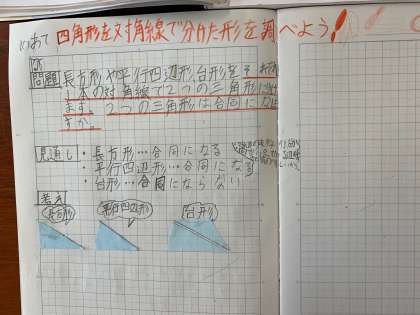 めあて 四角形を対角線で分けた形を調べよう!
問題 長方形や平行四辺形、台形を、それぞれ
1本の対角線で2つの三角形に分け
ます。2つの三角形は合同になり
ますか。
見通し ・長方形…合同になる
・平行四辺形…合同になる
・台形…合同にならない
考え
長方形 平行四辺形 台形